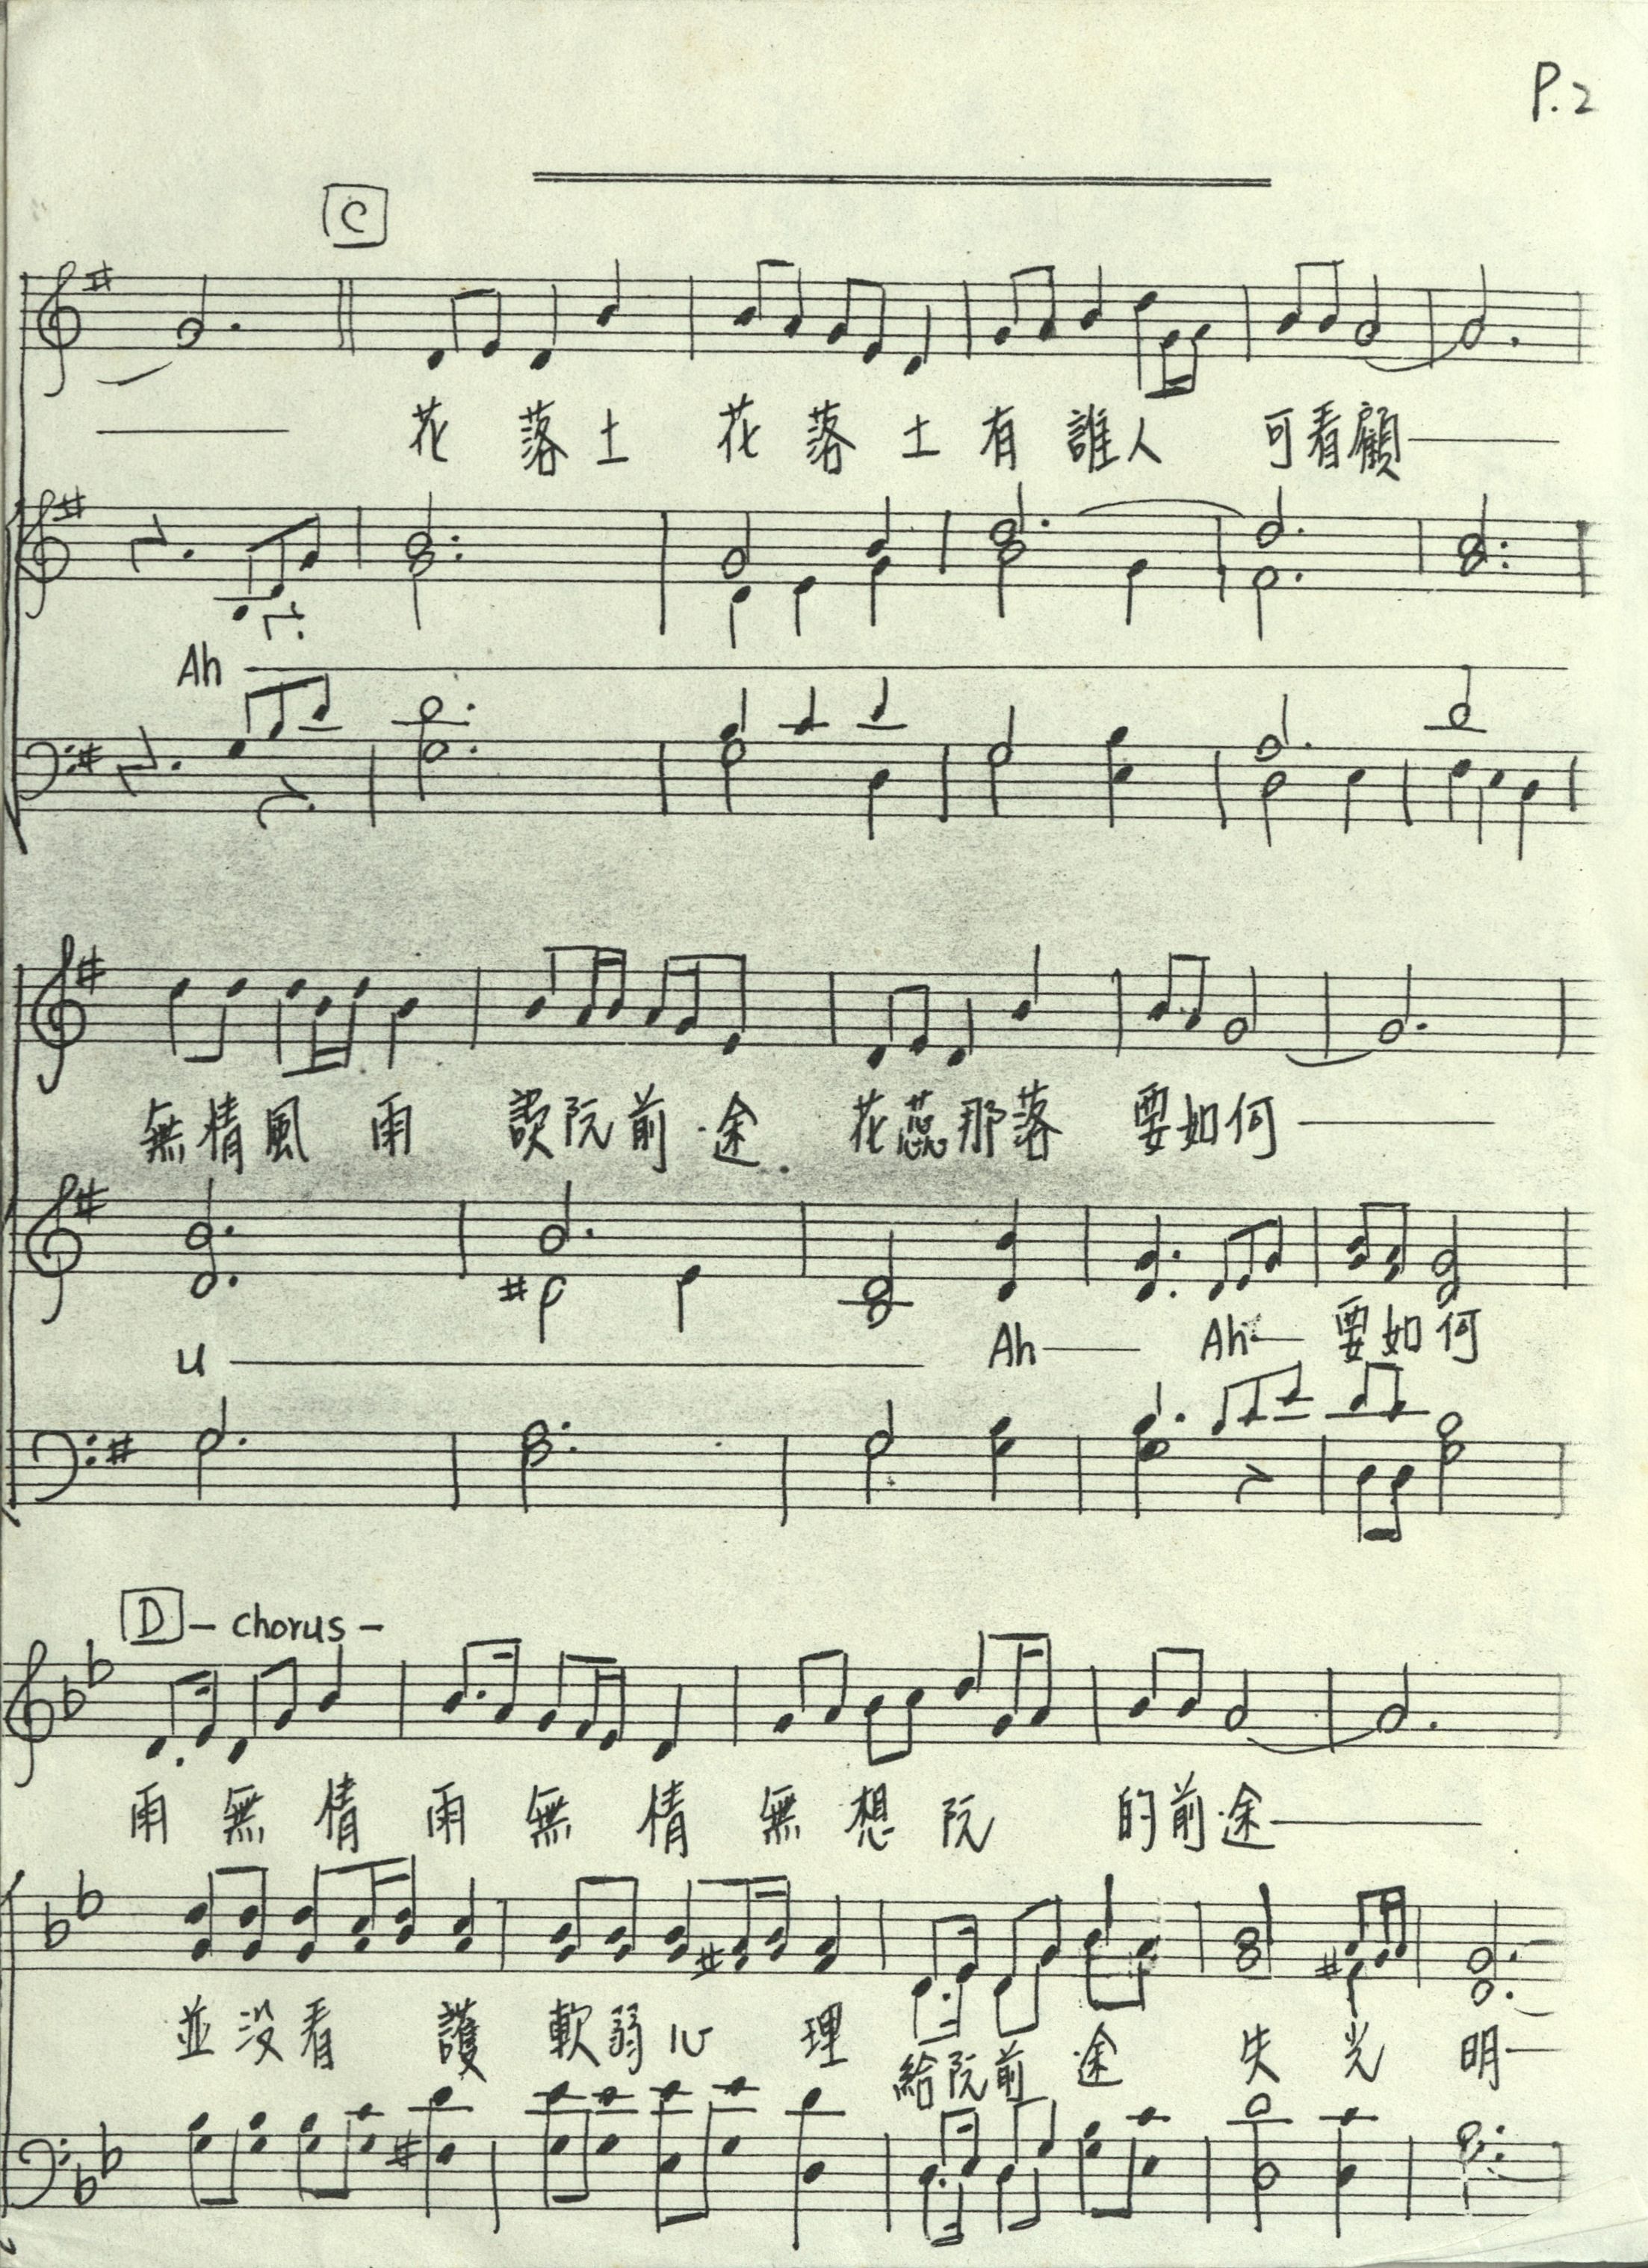 P.2
C
花落土 花落土有誰人 可看顧
Ah
無情風雨 誤阮前途 花蕊那落 要如何
u Ah Ah 要如何
D - chorus -
雨無情雨無情無想阮 的前途
並没看護 軟弱心理 給阮前途 失光明